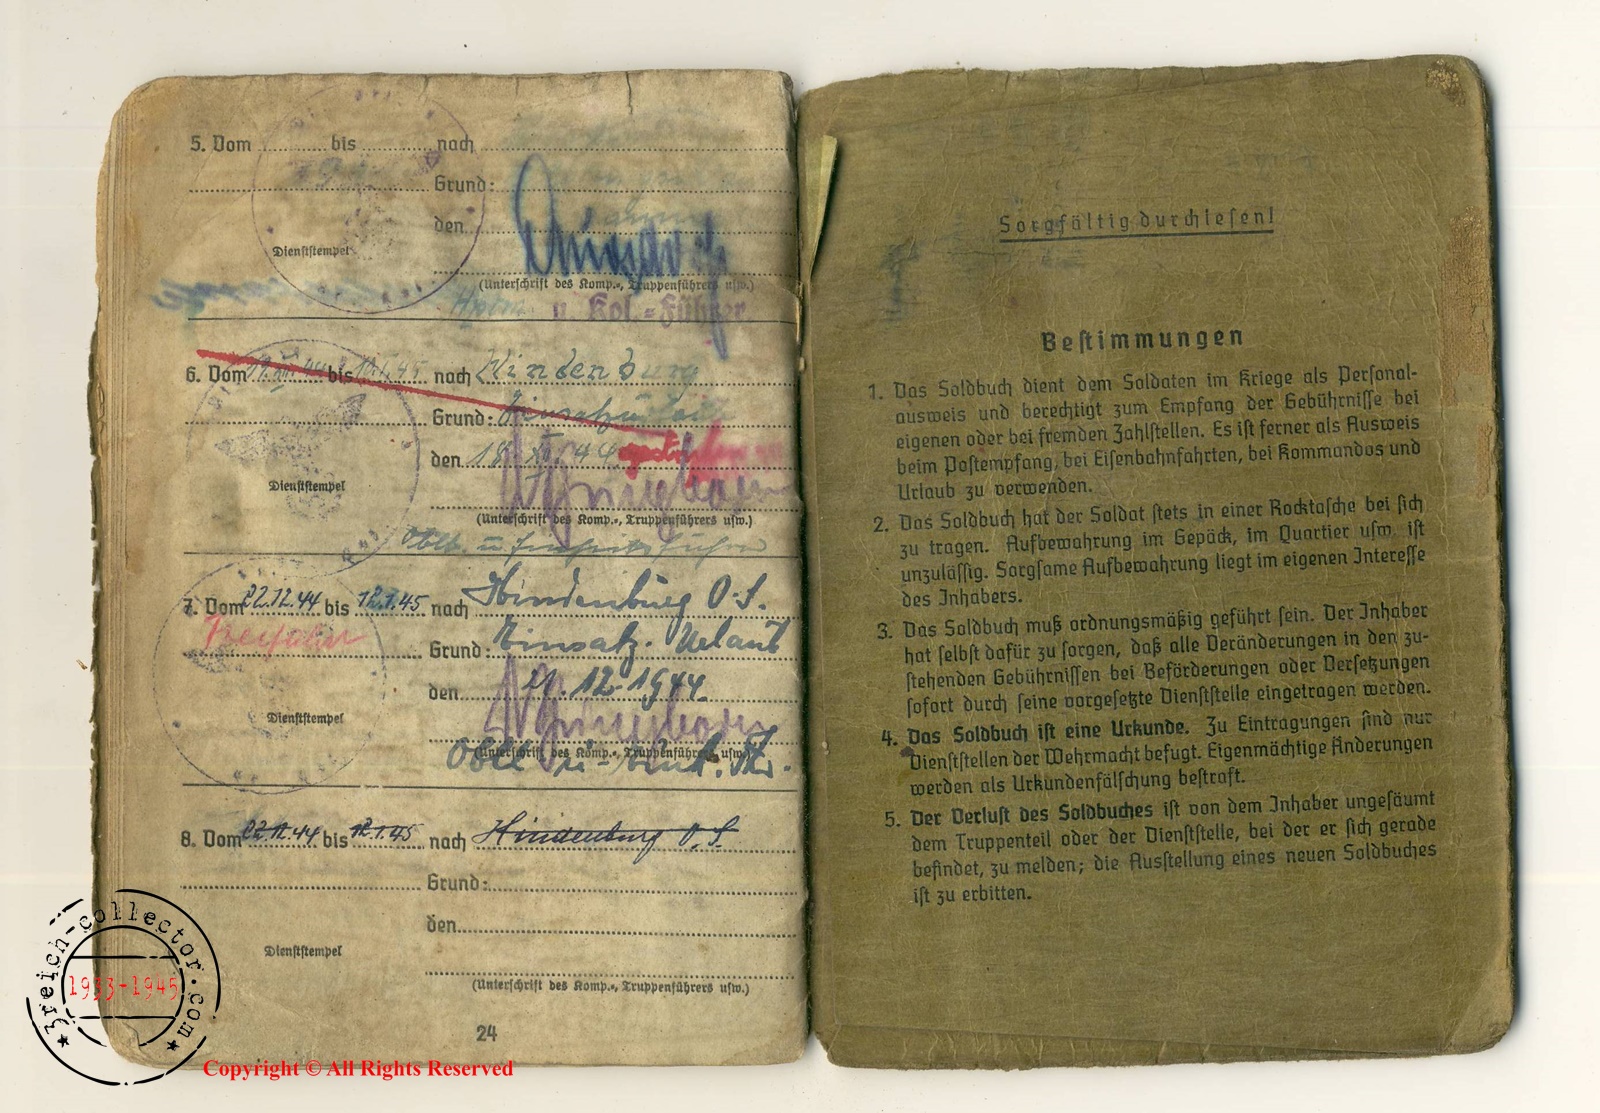 5. Vom bis nach
Grund:
den
Dienststempel
(Unterschrift des Komp.-, Truppenführers usw.)
u. Kol.-Führer
6. Vom bis 12.1.45 nach Hindenburg
Grund:
den 18. XII 44
Dienststempel
(Unterschrift des Komp.-, Truppenführers usw.)
7. Vom 22.12.44 bis 12.1.45 nach Hindenburg O.S.
Grund: Einsatz-Urlaub
den 21.12.1944.
Dienststempel
(Unterschrift des Komp.-, Truppenführers usw.)
8. Vom 22.12.44 bis 12.1.45 nach Hindenburg O.S.
Grund:
den
Dienststempel
(Unterschrift des Komp.-, Truppenführers usw.)
24
Sorgfältig durchlesen!
Bestimmungen
1. Das Soldbuch dient dem Soldaten im Kriege als Personal-
ausweis und berechtigt zum Empfang der Gebührnisse bei
eigenen oder bei fremden Zahlstellen. Es ist ferner als Ausweis
beim Postempfang, bei Eisenbahnfahrten, bei Kommandos und
Urlaub zu verwenden.
2. Das Soldbuch hat der Soldat stets in einer Rocktasche bei sich
zu tragen. Aufbewahrung im Gepäck, im Quartier usw. ist
unzulässig. Sorgsame Aufbewahrung liegt im eigenen Interesse
des Inhabers.
3. Das Soldbuch muß ordnungsmäßig geführt sein. Der Inhaber
hat selbst dafür zu sorgen, daß alle Veränderungen in den zu-
stehenden Gebührnissen bei Beförderungen oder Versetzungen
sofort durch seine vorgesetzte Dienststelle eingetragen werden.
4. Das Soldbuch ist eine Urkunde. Zu Eintragungen sind nur
Dienststellen der Wehrmacht befugt. Eigenmächtige Änderungen
werden als Urkundenfälschung bestraft.
5. Der Verlust des Soldbuches ist von dem Inhaber ungesäumt
dem Truppenteil oder der Dienststelle, bei der er sich gerade
befindet, zu melden; die Ausstellung eines neuen Soldbuches
ist zu erbitten.
3reich-collector.com
1933-1945
Copyright © All Rights Reserved